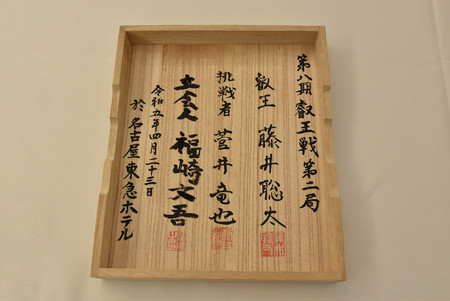 第八期叡王戦第二局
叡王 藤井聡太
挑戦者 菅井竜也
立会人 福崎文吾
令和五年四月二十三日
於 名古屋東急ホテル